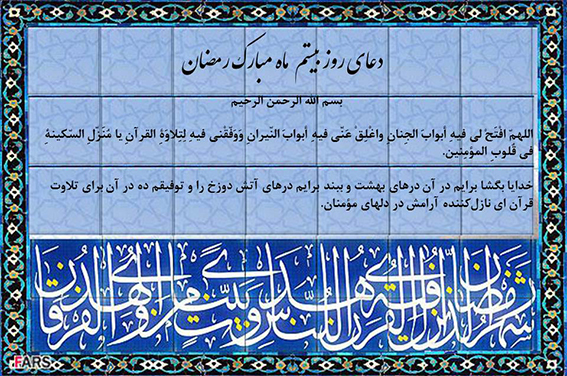 دعای روز بیستم ماه مبارک رمضان
بسم الله الرحمن الرحیم
اللهمّ افْتَحْ لی فیهِ أبوابَ الجِنان واغْلِقْ عَنّی فیهِ أبوابَ النّیرانِ وَوَفّقْنی فیهِ لِتِلاوَةِ القرآنِ یا مُنَزّلِ السّکینةِ
فی قُلوبِ المؤمِنین.
خدایا بگشا برایم در آن درهای بهشت و ببند برایم درهای آتش دوزخ را و توفیقم ده در آن برای تلاوت
قرآن ای نازل‌کننده آرامش در دلهای مؤمنان.
شهر رمضان الذی انزل فیه القرآن هدی للناس و بینت من الهدی و الفرقان
FARS